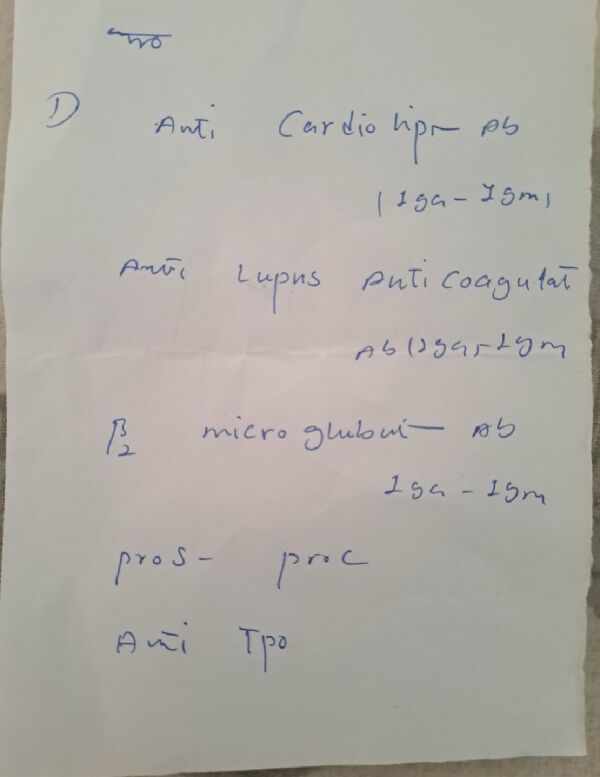 ①
Anti Cardiolipin Ab
(Iga - Igm)
Anti Lupus Anticoagulat
Ab (Iga, Igm
β2 microglubui— Ab
Iga - Igm
proS- proC
Anti Tpo